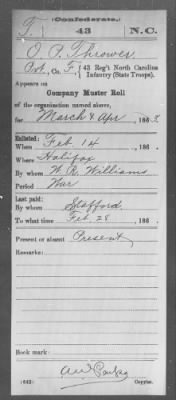 T. (Confederate.)
43 N.C.
O. P. Thrower
Pvt., Co. F., 43 Reg't North Carolina
Infantry (State Troops).
Appears on
Company Muster Roll
of the organization named above,
for March & Apr, 1863.
Enlisted:
When Feb 14, 186 .
Where Halifax
By whom W. R. Williams
Period War
Last paid:
By whom Stafford
To what time Feb. 28, 186 .
Present or absent Present
Remarks:
Book mark:
(642) Copyist.